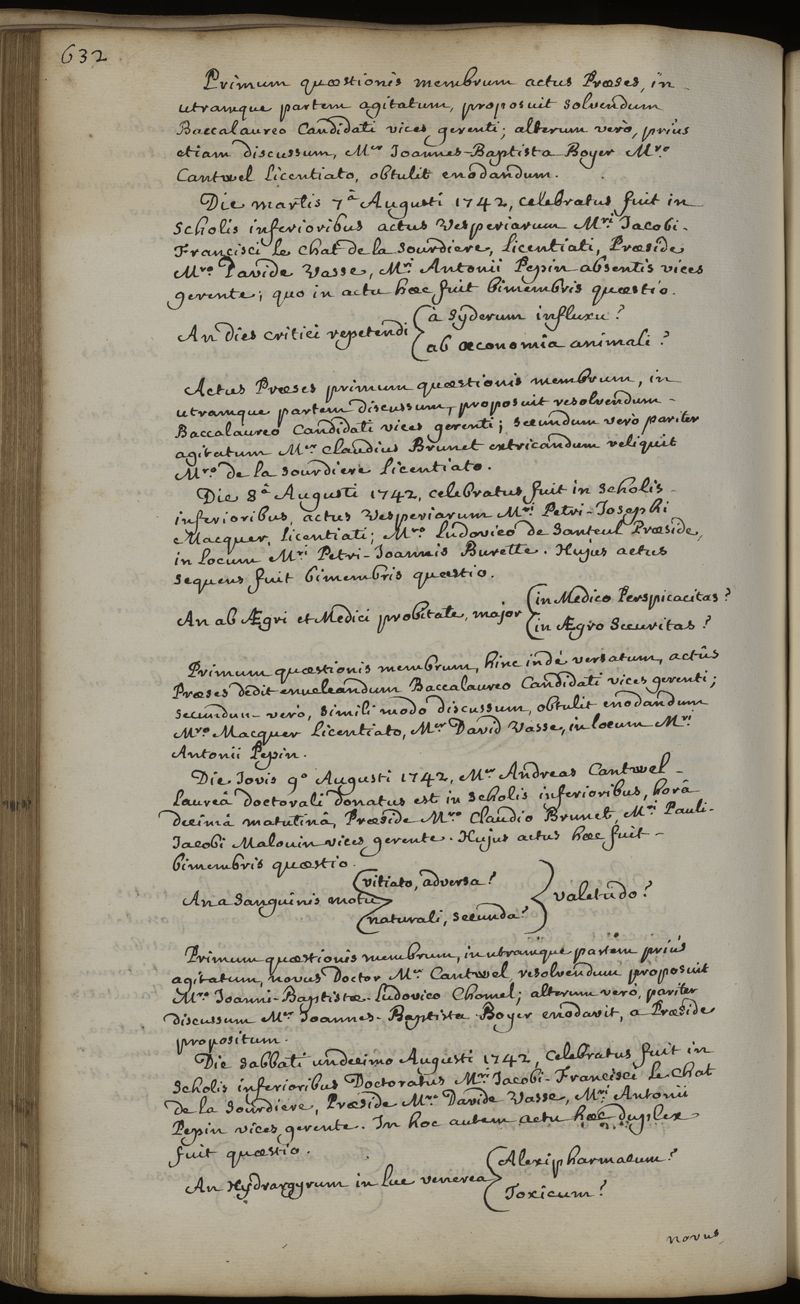 632
Primum quæstionis membrum actus Præses, in
utramque partem agitatum, proposuit solvendum
Baccalaureo Candidati vices gerenti; alterum verò, priùs
etiam discussum, Mer Joannes-Baptista Boyer Mro
Cantwel Licentiato, obtulit enodandum.
Die martis 7â Augusti 1742, celebratus fuit in
Scholis inferioribus actus Vesperiarum Mri Jacobi-
Francisci Le Chat de la Sourdiere, Licentiati, Præside
Mro Davide Vasse, Mri Antonii Pepin absentis vices
gerente; quo in actu hæc fuit bimembris quæstio.
An dies critici repetendi { à Syderum influxu?
ab œconomia animali?
Actus Præses primum quæstionis membrum, in
utramque partem discussum, proposuit resolvendum
Baccalaureo Candidati vices gerenti; secundum verò pariter
agitatum Mer Claudius Brunet extricandum reliquit
Mro de la Sourdiere Licentiato.
Die 8â Augusti 1742, celebratus fuit in Scholis
inferioribus, actus Vesperiarum Mri Petri-Josephi
Macquer, Licentiati; Mro Ludovico de Santeul Præside,
in Locum Mri Petri-Joannis Burette. Hujus actus
sequens fuit bimembris quæstio.
An ab Ægri et Medici probitate, major { in Medico Perspicacitas?
in Ægro Securitas?
Primum quæstionis membrum, hinc indè versatum, actûs
Præses dedit enucleandum Baccalaureo Candidati vices gerenti;
secundum verò, simili modo discussum, obtulit enodandum
Mro Macquer Licentiato, Mer David Vasse, in locum Mri
Antonii Pepin.
Die Jovis 9o Augusti 1742, Mer Andreas Cantwel
Laureâ doctorali donatus est in Scholis inferioribus, horâ
decimâ matutinâ, Præside Mro Claudio Brunet, Mri Pauli-
Jacobi Malouin vices gerente. Hujus actus hæc fuit
bimembris quæstio.
An a Sanguinis motu { vitiato, adversa?
naturali, secunda? } valetudo?
Primum quæstionis membrum, in utramque partem priùs
agitatum, novus Doctor Mer Cantwel resolvendum proposuit
Mro Joanni-Baptistæ-Ludovico Chomel; alterum vero, pariter
discussum Mer Joannes-Baptista Boyer enodavit, a Præside
propositum.
Die Sabbati undecimo Augusti 1742, Celebratus fuit in
Scholis inferioribus Doctoratus Mri Jacobi-Francisci Le Chat
de la Sourdiere, Præside Mro Davide Vasse, Mri Antonii
Pepin vices gerente. In hoc autem actu hæc duplex
fuit quæstio.
An Hydrargyrum in lue venerea { Alexipharmacum?
Toxicum?
novus